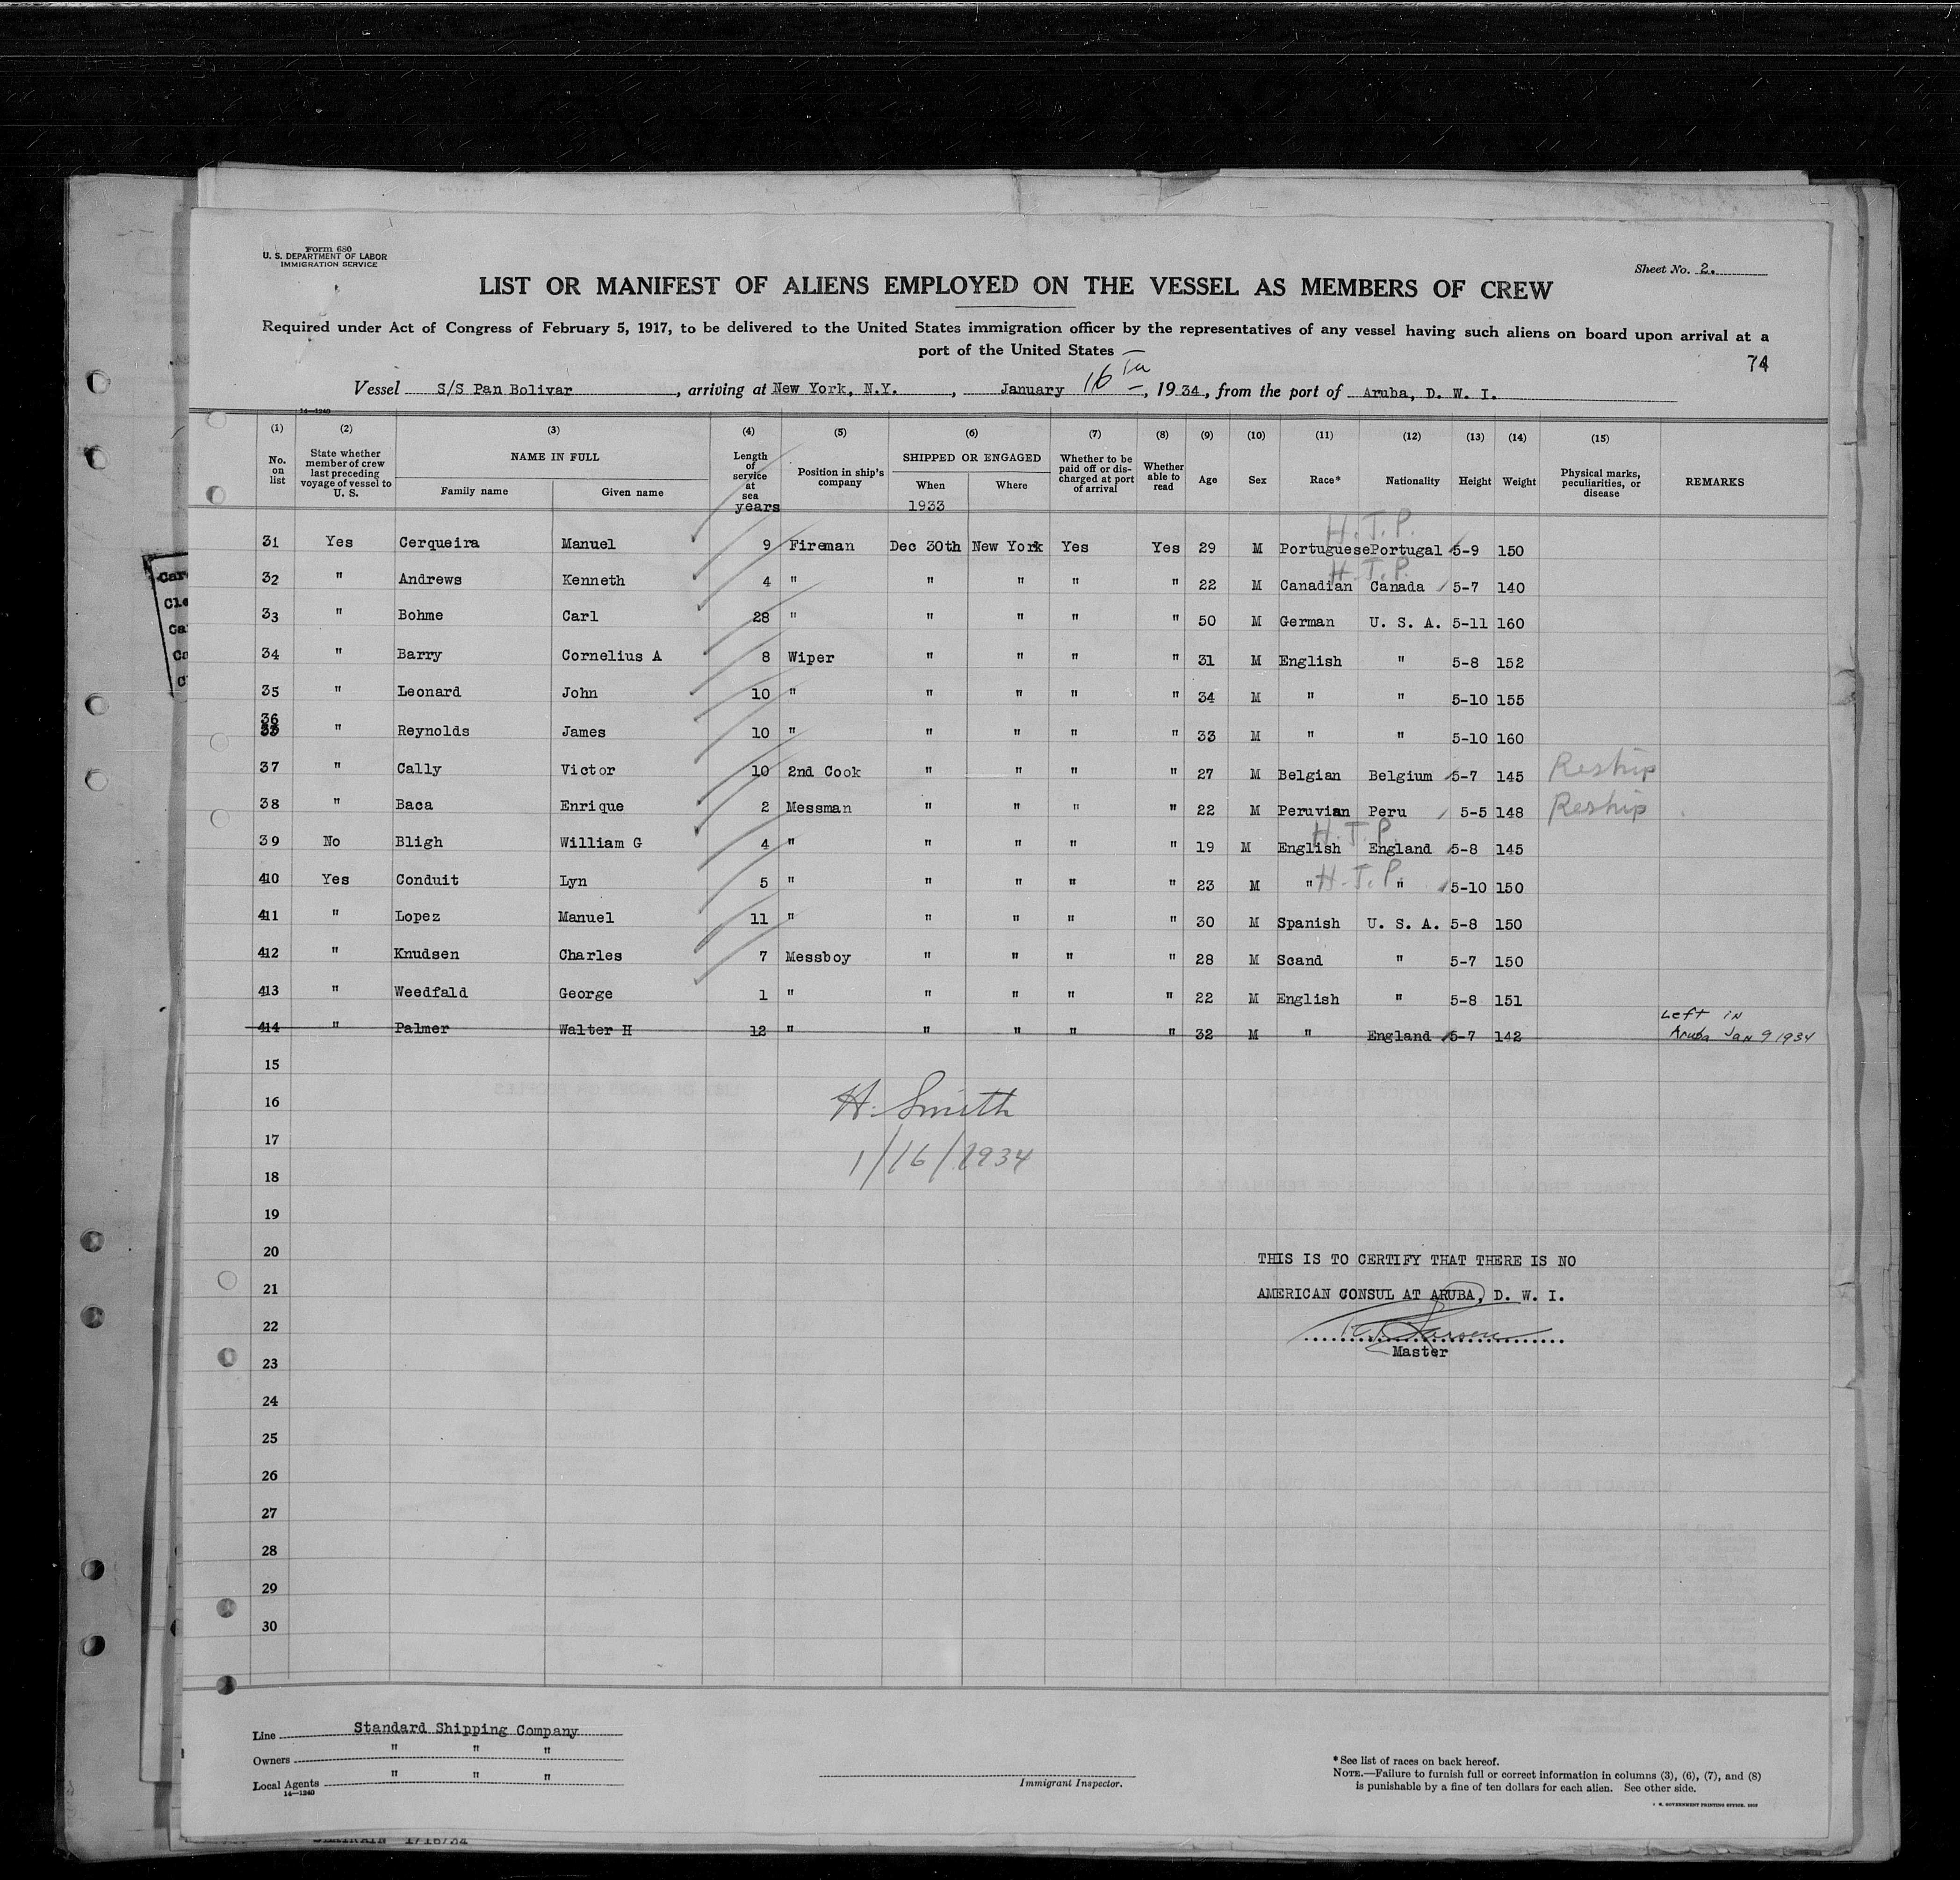 Form 680
U. S. DEPARTMENT OF LABOR
IMMIGRATION SERVICE
Sheet No. 2.
LIST OR MANIFEST OF ALIENS EMPLOYED ON THE VESSEL AS MEMBERS OF CREW
Required under Act of Congress of February 5, 1917, to be delivered to the United States immigration officer by the representatives of any vessel having such aliens on board upon arrival at a
port of the United States
74
Vessel S/S Pan Bolivar, arriving at New York, N.Y., January 16th, 1934, from the port of Aruba, D. W. I.
14—1240
(1) (2) (3) (4) (5) (6) (7) (8) (9) (10) (11) (12) (13) (14) (15)
No. on list State whether member of crew last preceding voyage of vessel to U. S. NAME IN FULL Family name Given name Length of service at sea years Position in ship's company SHIPPED OR ENGAGED When 1933 Where Whether to be paid off or discharged at port of arrival Whether able to read Age Sex Race* Nationality Height Weight Physical marks, peculiarities, or disease REMARKS
H.T.P.
31 Yes Cerqueira Manuel 9 Fireman Dec 30th New York Yes Yes 29 M Portuguese Portugal 5-9 150
H.T.P.
32 " Andrews Kenneth 4 " " " " " 22 M Canadian Canada 5-7 140
33 " Bohme Carl 28 " " " " " 50 M German U. S. A. 5-11 160
34 " Barry Cornelius A 8 Wiper " " " " 31 M English " 5-8 152
35 " Leonard John 10 " " " " " 34 M " " 5-10 155
36 " Reynolds James 10 " " " " " 33 M " " 5-10 160
37 " Cally Victor 10 2nd Cook " " " " 27 M Belgian Belgium 5-7 145 Reship
38 " Baca Enrique 2 Messman " " " " 22 M Peruvian Peru 5-5 148 Reship
H.T.P.
39 No Bligh William G 4 " " " " " 19 M English England 5-8 145
40 Yes Conduit Lyn 5 " " " " " 23 M " H.T.P. " 5-10 150
411 " Lopez Manuel 11 " " " " " 30 M Spanish U. S. A. 5-8 150
412 " Knudsen Charles 7 Messboy " " " " 28 M Scand " 5-7 150
413 " Weedfald George 1 " " " " " 22 M English " 5-8 151
414 " Palmer Walter H 12 " " " " " 32 M " England 5-7 142 Left in Aruba Jan 9 1934
15
16
H. Smith
17
1/16/1934
18
19
20
THIS IS TO CERTIFY THAT THERE IS NO
21
AMERICAN CONSUL AT ARUBA, D. W. I.
22
Master
23
24
25
26
27
28
29
30
Line Standard Shipping Company
Owners " " "
Local Agents " " "
14—1240
Immigrant Inspector.
*See list of races on back hereof.
NOTE.—Failure to furnish full or correct information in columns (3), (6), (7), and (8)
is punishable by a fine of ten dollars for each alien. See other side.
1/16/34